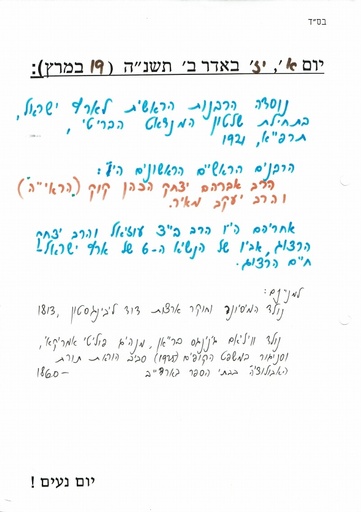 בס״ד
יום א׳, יז׳ באדר ב׳ תשנ״ה (19 במרץ):
נוסדה הרבנות הראשית לארץ ישראל,
בתחילת שלטון המנדט הבריטי,
תרפ״א, 1921
הרבנים הראשיים הראשונים היו:
הרב אברהם יצחק הכהן קוק (הראי״ה)
והרב יעקב מאיר.
אחריהם היו הרב ב״צ עוזיאל והרב יצחק
הרצוג, אביו של הנשיא ה-6 של ארץ ישראל-
חיים הרצוג.
נולד המיסיונר וחוקר ארצות דוד ליבינגסטון, 1813
נולד וויליאם ג׳נינגס בריאן, מנהיג פוליטי אמריקאי,
וסניגור במשפט הקופים (1925) סביב הוראת תורת
האבולוציה בבתי הספר בארה״ב - 1860
יום נעים !